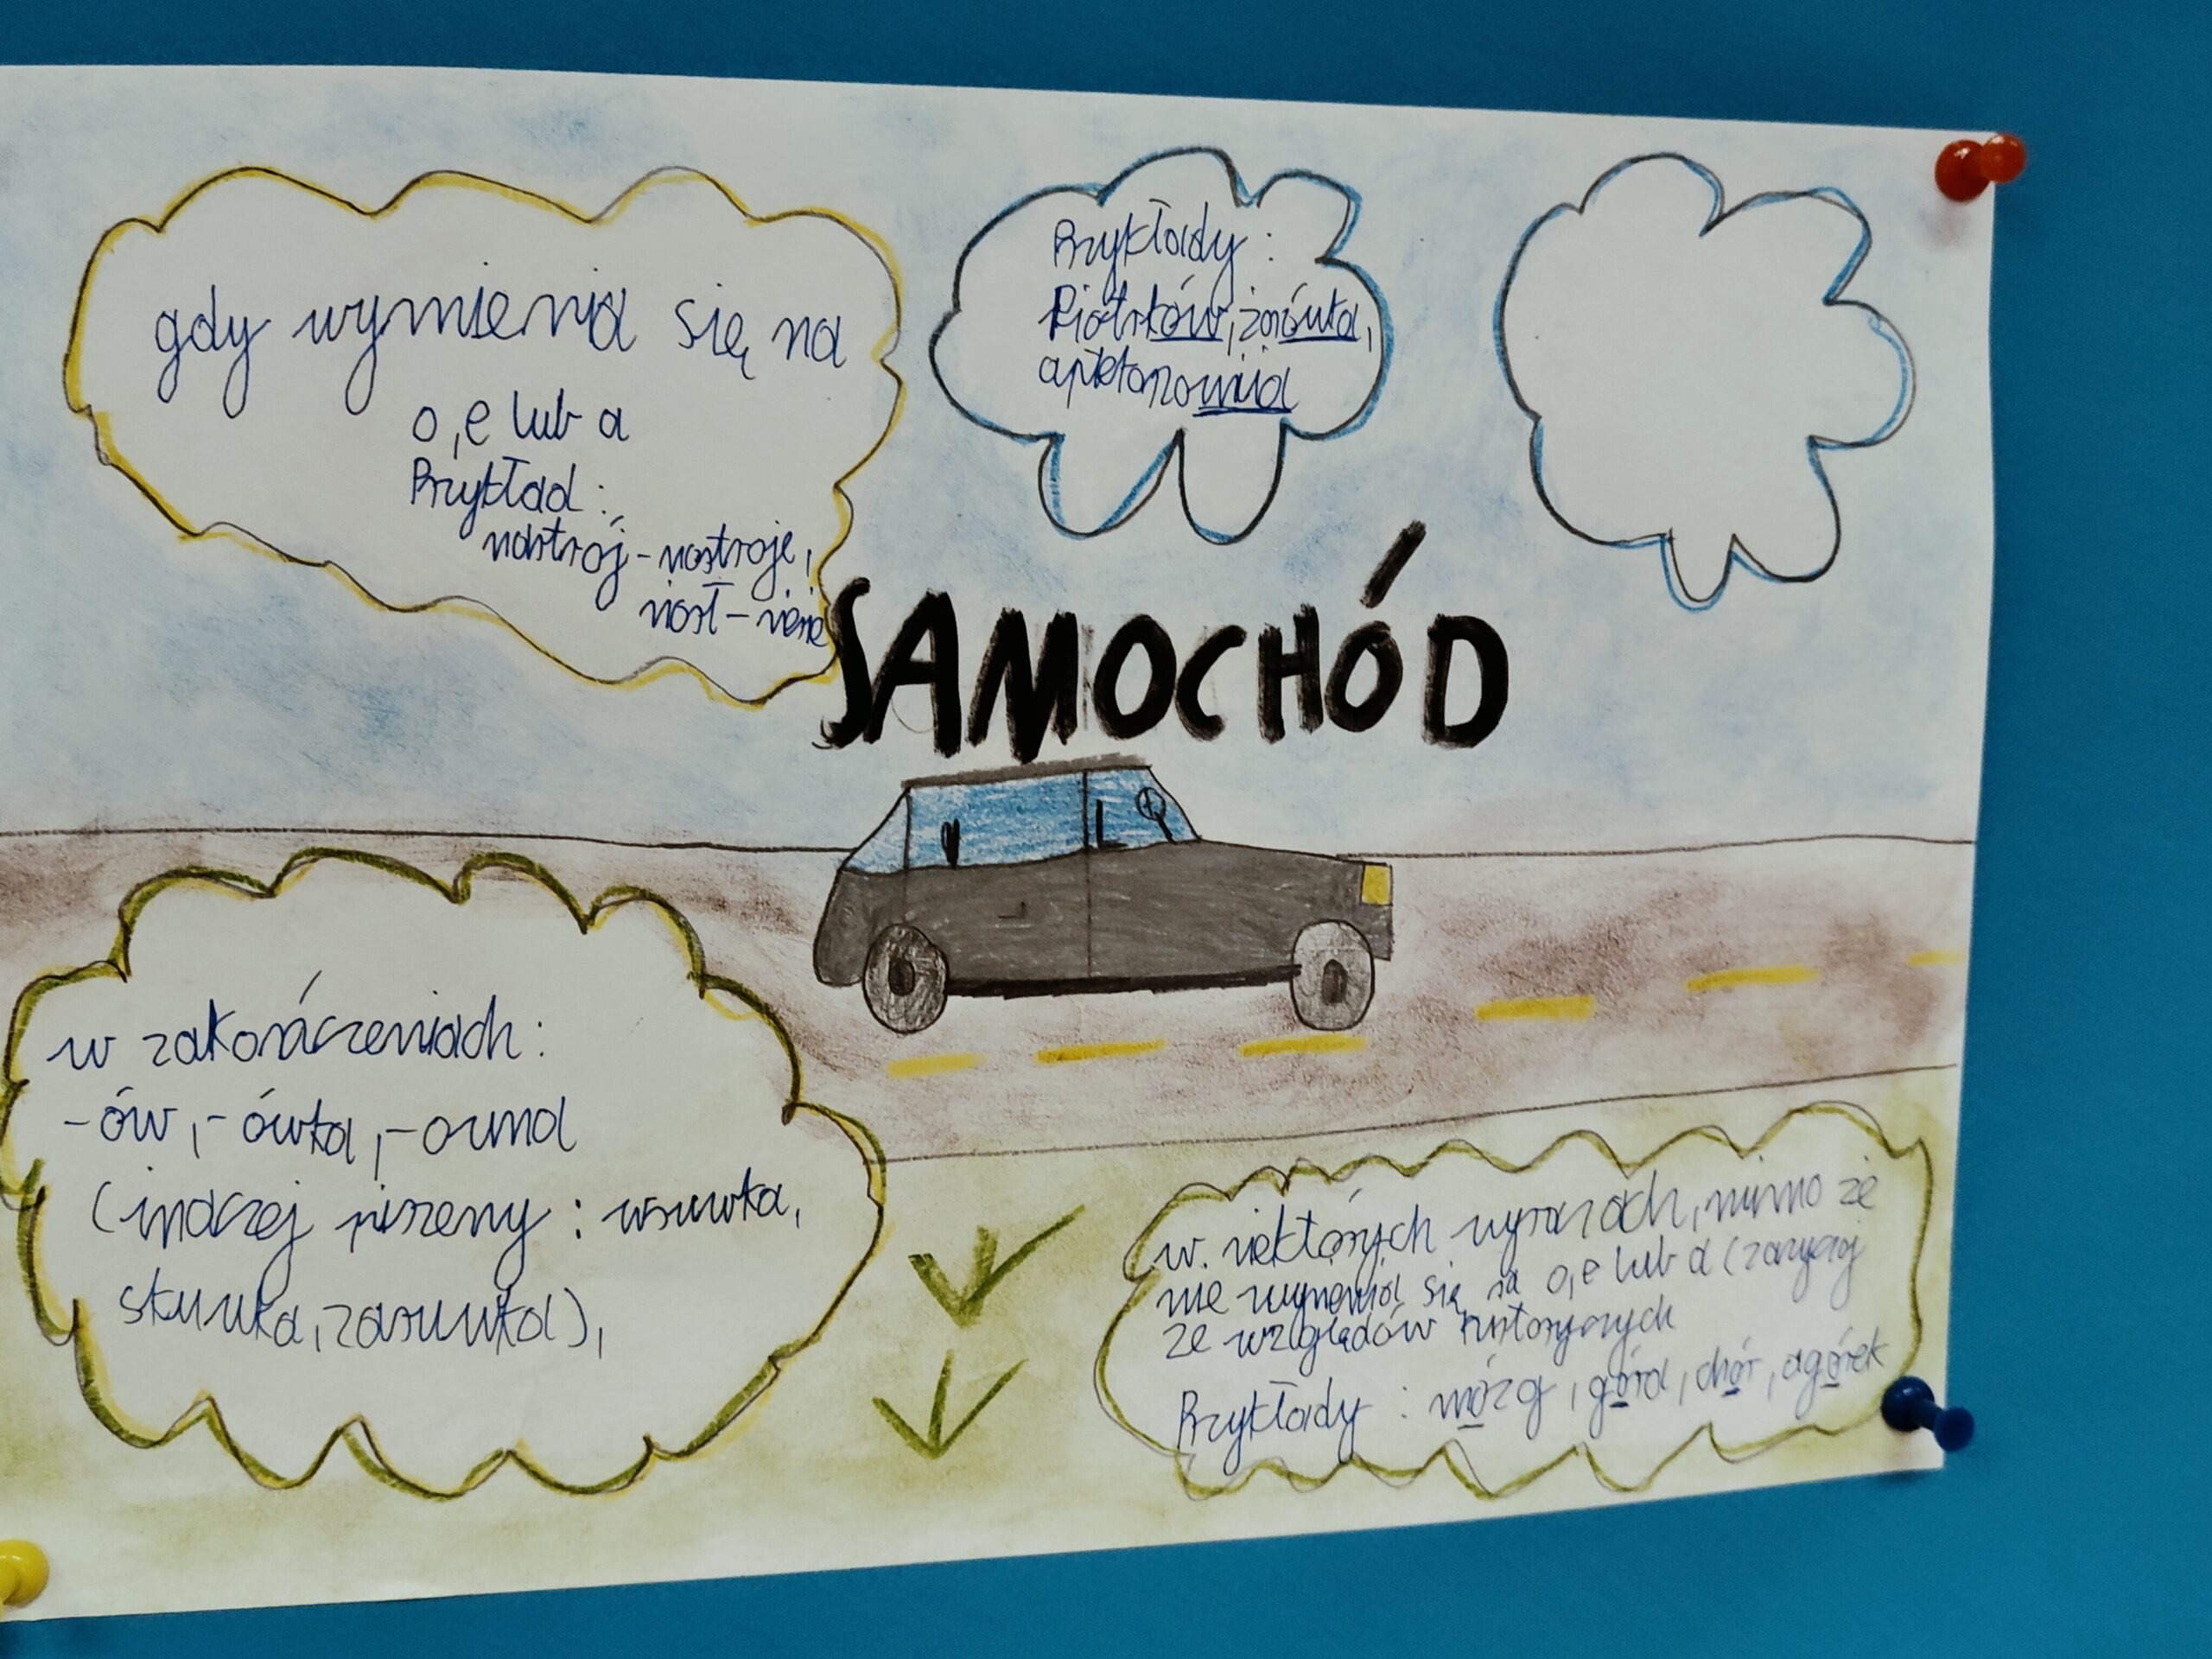 gdy wymienia się na
o, e lub a
Przykład:
nastrój - nastroje,
niósł - niesie
Przykłady:
Piotrków, żarówka,
SAMOCHÓD
w zakończeniach:
-ów, -ówka, -owna
(inaczej piszemy: wsuwka,
skuwka, zasuwka),
w niektórych wyrazach, mimo że
nie wymienia się na o, e lub a (zazwyczaj
ze względów historycznych
Przykłady: mózg, góra, chór, ogórek